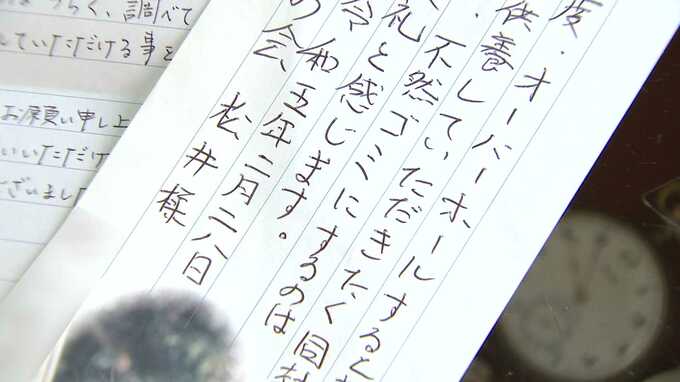 度・オーバーホールすると
供養していただきたく同封
・不然ゴミにするのは
礼と感じます。
令和五年二月二八日
の会、松井様
づらく、調べて
していただける事を
お願い申し上
いただけ
ございました